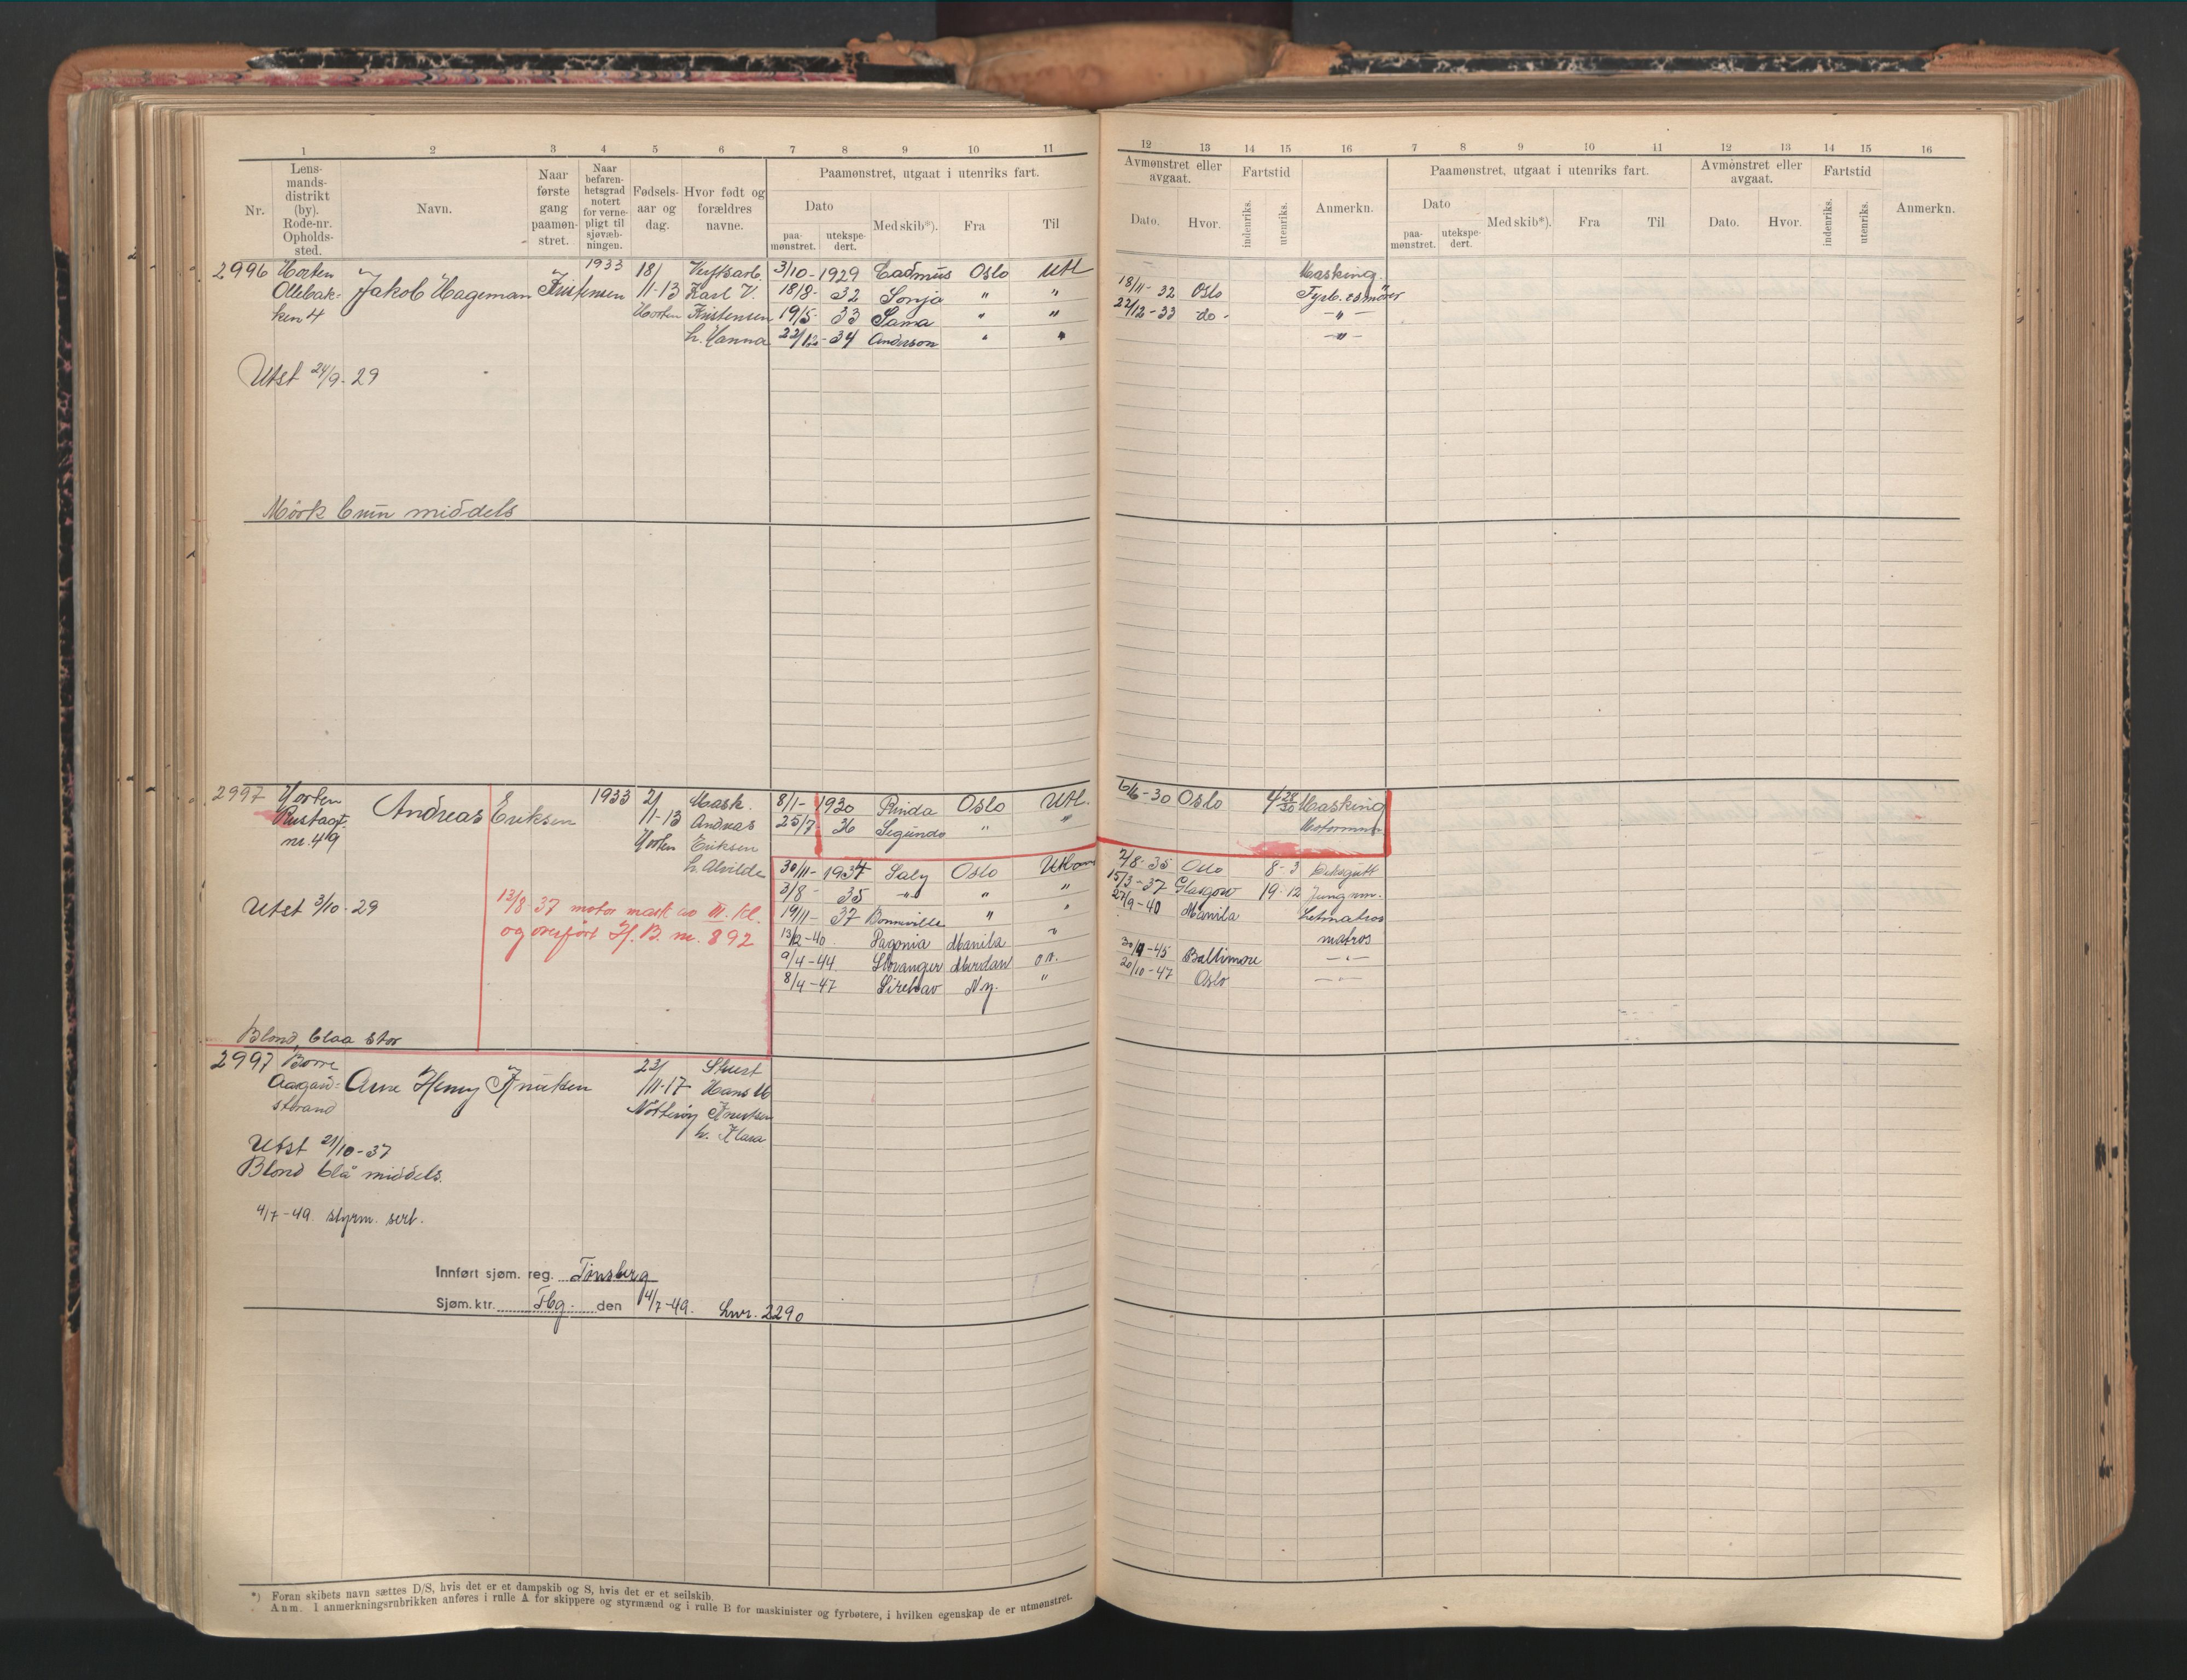 1 2 3 4 5 6 7 8 9 10 11
Nr. Lens-mands-distrikt (by). Rode-nr. Opholds-sted. Navn. Naar første gang paamøn-stret. Naar befaren-hetsgrad notert for verne-pligt til sjøvæb-ningen. Fødsels-aar og dag. Hvor født og forældres navne. Paamønstret, utgaat i utenriks fart.
Dato Med skib*). Fra Til
paa-mønstret. utekspe-dert.
12 13 14 15 16 7 8 9 10 11 12 13 14 15 16
Avmønstret eller avgaat. Fartstid Anmerkn. Paamønstret, utgaat i utenriks fart. Avmønstret eller avgaat. Fartstid Anmerkn.
Dato. Hvor. indenriks. utenriks. Dato Med skib*). Fra Til Dato. Hvor. indenriks. utenriks.
paa-mønstret. utekspe-dert.
2996 Horten 1933 18/ Verftsarb. 3/10 - 1929 Cadmus Oslo Utl Masking.
Ollebak- Jakob Hageman Kristensen 11-13 Karl V. 18/8 - 32 Sonja " " 18/11 - 32 Oslo Fyrb. & smører
ken 4 Horten Kristensen 19/5 - 33 Sama " " 22/12 - 33 do - - " -
h. Hanna 22/12 - 34 Anderson " " - " -
Utst 24/9 - 29
Mörk brun middels
2997 Horten Andreas Eriksen 1933 2/ Mask. 8/1 - 1930 Rinda Oslo Utl. 6/6 - 30 Oslo 4 28/30 Masking
Rustagt. 11-13 Andreas 25/7 36 Segundo " " Motormn.
nr. 49 Horten Eriksen
h. Alvilde 30/11 - 1934 Saly Oslo Utlan 2/8 - 35 Oslo 8 - 3 Deksgutt
3/8 - 35 - " - " " 15/3 - 37 Glasgow 19 - 12 Jungm.
Utst 3/10 - 29 13/8 37 motor mask av III. Kl. 19/11 - 37 Bonneville " " 27/9 - 40 Manila Letmatros
og overført H. B. nr. 892 13/12 - 40 Pagonia Manila " matros
9/4 - 44 Stavanger on. 30/9 - 45 Baltimore - " -
8/4 - 47 Sirehav N.y. " 20/10 - 47 Oslo - " -
Blond, blaa stor
2997 Borre 23/ Stuert
Aasgaard- Arne Henry Knutsen 11-17 Hans M
strand Nötteröy Knutsen
h. Klara
Utst 21/10 - 37
Blond blå middels.
4/7 - 49. styrm. sert.
Innført sjøm. reg. Tönsberg
Sjøm. ktr. Tbg. den 4/7 - 49. Lnr. 2290
*) Foran skibets navn sættes D/S, hvis det er et dampskib og S, hvis det er et seilskib.
Anm. I anmerkningsrubrikken anføres i rulle A for skippere og styrmænd og i rulle B for maskinister og fyrbøtere, i hvilken egenskap de er utmønstret.